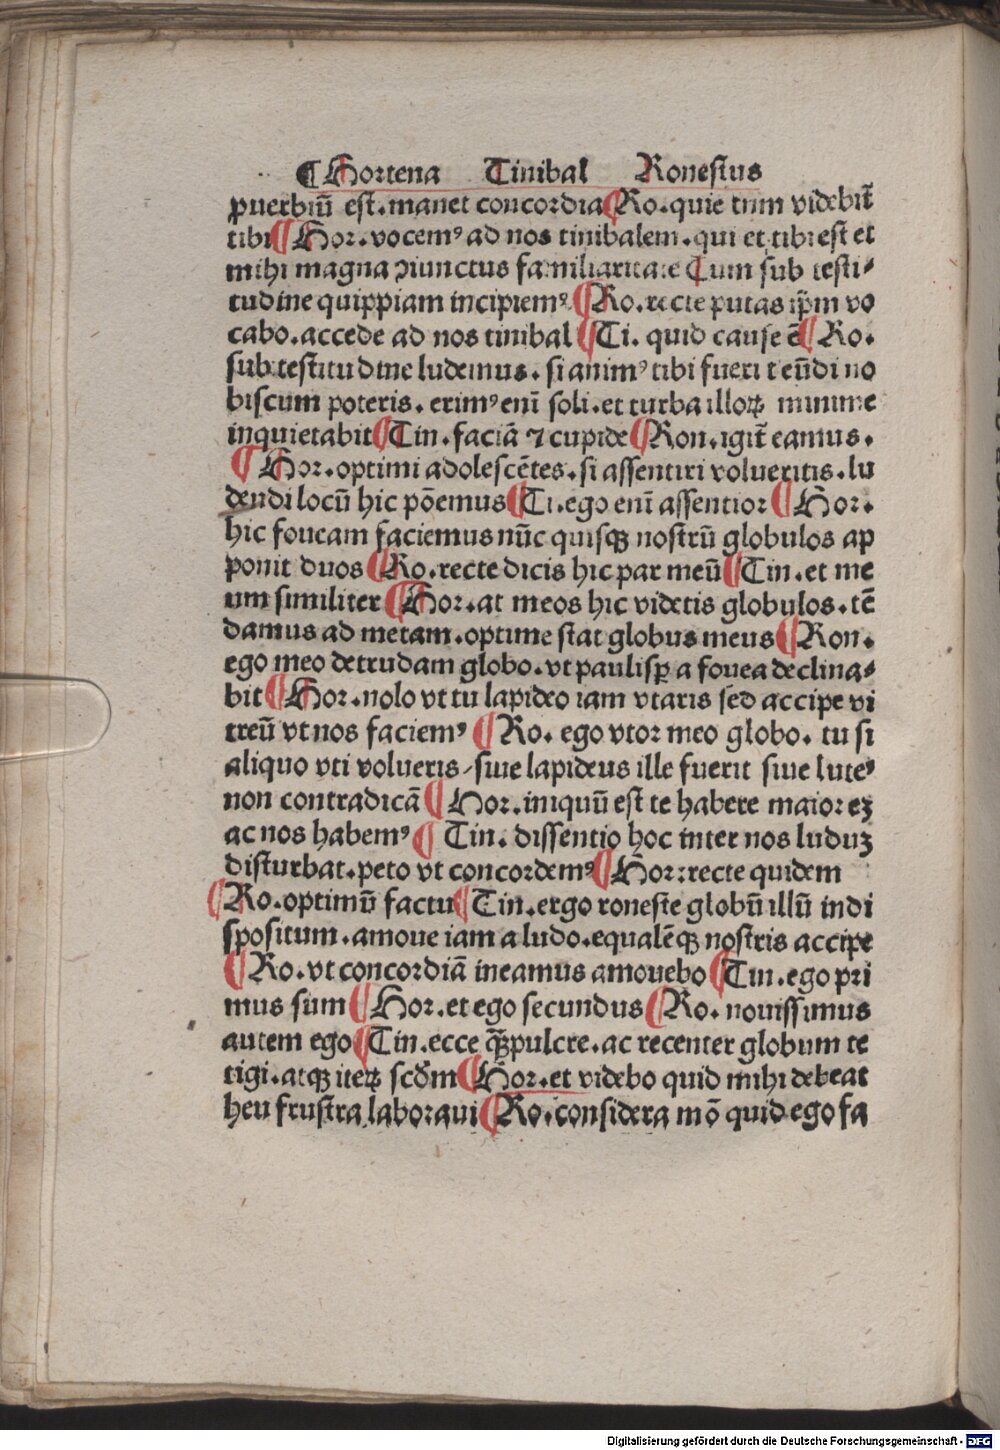 ¶ Hortena Tinibal Ronestus
ꝓuerbiū est. manet concordia ¶ Ro. quie tnm videbit᷑
tibi ¶ Hor. vocemꝰ ad nos tinibalem. qui et tibi est et
mihi magna ꝯiunctus familiaritate Cum sub testi⸗
tudine quippiam incipiemꝰ. ¶ Ro. recte putas ip̄m vo
cabo. accede ad nos tinibal ¶ Ti. quid cause ē ¶ Ro.
sub testitudine ludemus. si animꝰ tibi fueri t eūdi no
biscum poteris. erimꝰ eni᷑ soli. et turba illoꝝ minime
inquietabit ¶ Tin. faciā ⁊ cupide ¶ Ron. igit᷑ eamus.
¶ Hor. optimi adolescētes. si assentiri volueritis. lu
dendi locū hic pōemus ¶ Ti. ego enī assentior ¶ Hor.
hic foueam faciemus nūc quisqꝫ nostrū globulos ap
ponit duos ¶ Ro. recte dicis hic par meū ¶ Tin. et me
um similiter ¶ Hor. at meos hic videtis globulos. tē
damus ad metam. optime stat globus meus ¶ Ron.
ego meo detrudam globo. vt paulisꝑ a fouea declina⸗
bit ¶ Hor. nolo vt tu lapideo iam vtaris sed accipe vi
treū vt nos faciemꝰ ¶ Ro. ego vtor meo globo. tu si
aliquo vti volueris / siue lapideus ille fuerit siue luteꝰ
non contradicā ¶ Hor. iniquū est te habere maiorez
ac nos habemꝰ ¶ Tin. dissentio hoc inter nos luduz
disturbat. peto vt concordemꝰ ¶ Hor: recte quidem
¶ Ro. optimū factu ¶ Tin. ergo roneste globū illū indi
spositum. amoue iam a ludo. equalēqꝫ nostris accipe
¶ Ro. vt concordiā ineamus amouebo ¶ Tin. ego pri
mus sum ¶ Hor. et ego secundus ¶ Ro. nouissimus
autem ego ¶ Tin. ecce qꝫ̄ pulcre. ac recenter globum te
tigi. atqꝫ iteꝝ scd̄m ¶ Hor. et videbo quid mihi debeat
heu frustra laboraui ¶ Ro. considera mō quid ego fa
Digitalisierung gefördert durch die Deutsche Forschungsgemeinschaft - DFG